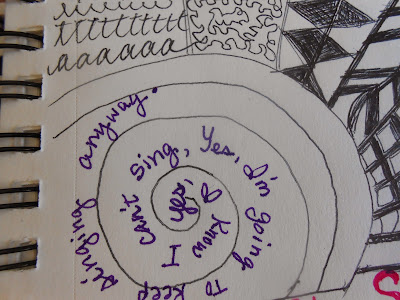 aaaaaaa
Yes, I know I can't sing, Yes, I'm going To keep singing anyway.